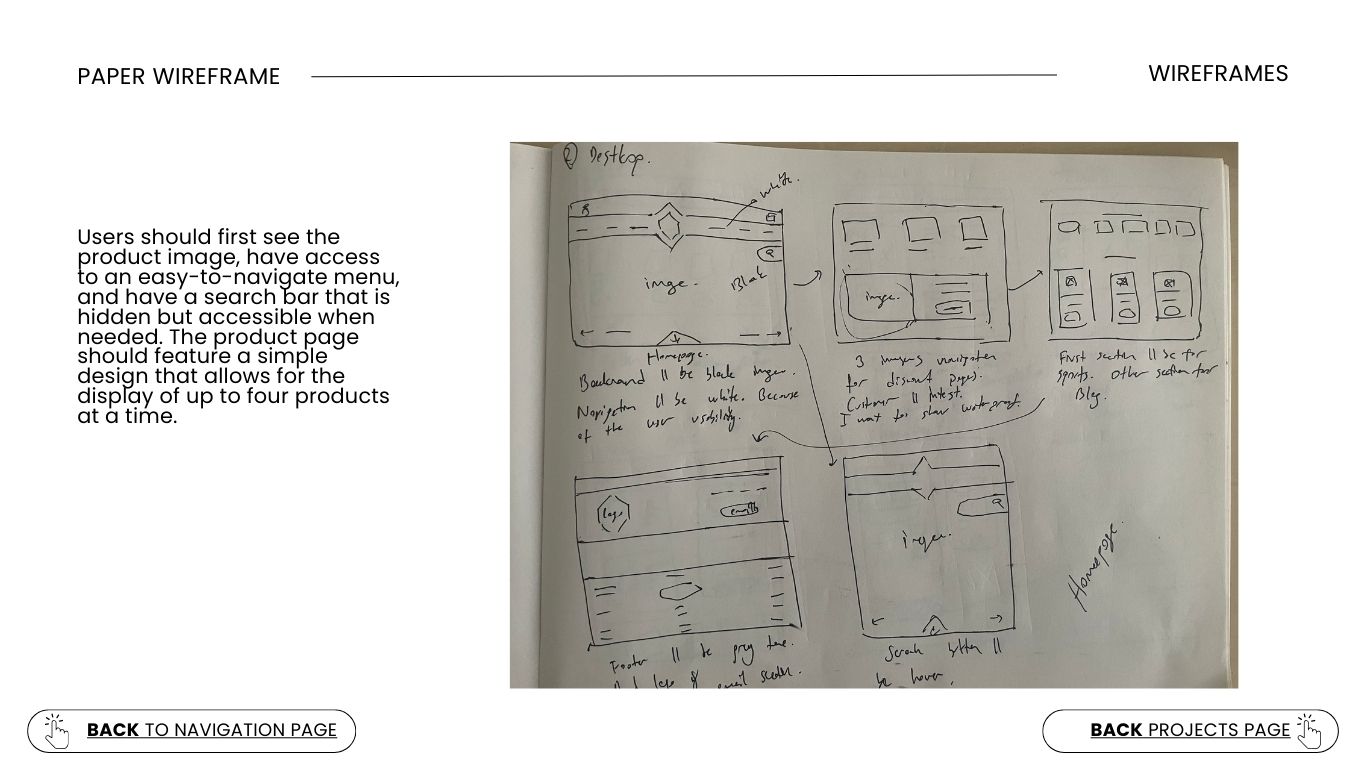 PAPER WIREFRAME
WIREFRAMES
Users should first see the
product image, have access
to an easy-to-navigate menu,
and have a search bar that is
hidden but accessible when
needed. The product page
should feature a simple
design that allows for the
display of up to four products
at a time.
2 Desktop.
white.
imge.
Homepage.
Navigation 'll be white. Because
of the user usability.
image.
3 images navigation
for discount pages.
Customer 'll
I want for show waterproof.
First section 'll be for
sports. Other section for
Blog.
Logo
Footer 'll be grey tone.
logo & email
Homepage.
button 'll
be hover.
BACK TO NAVIGATION PAGE
BACK PROJECTS PAGE